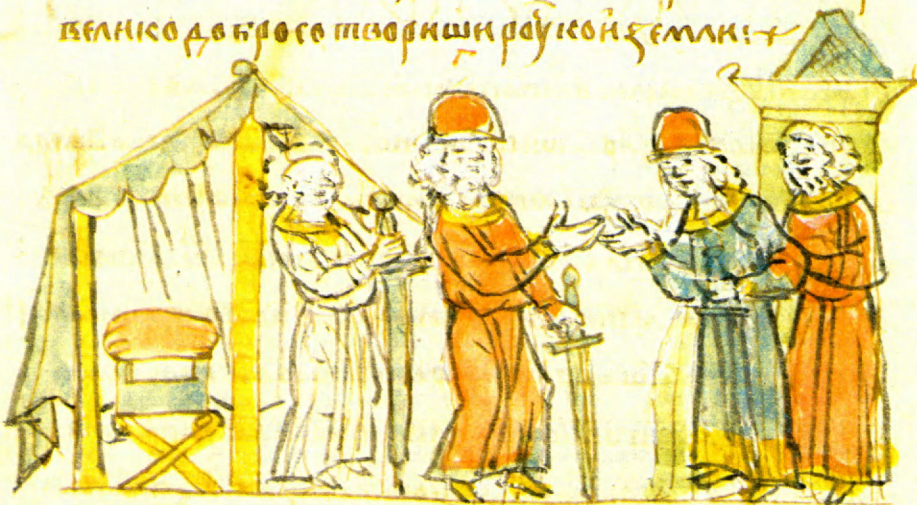 велико добросотворишироускоиземли:+